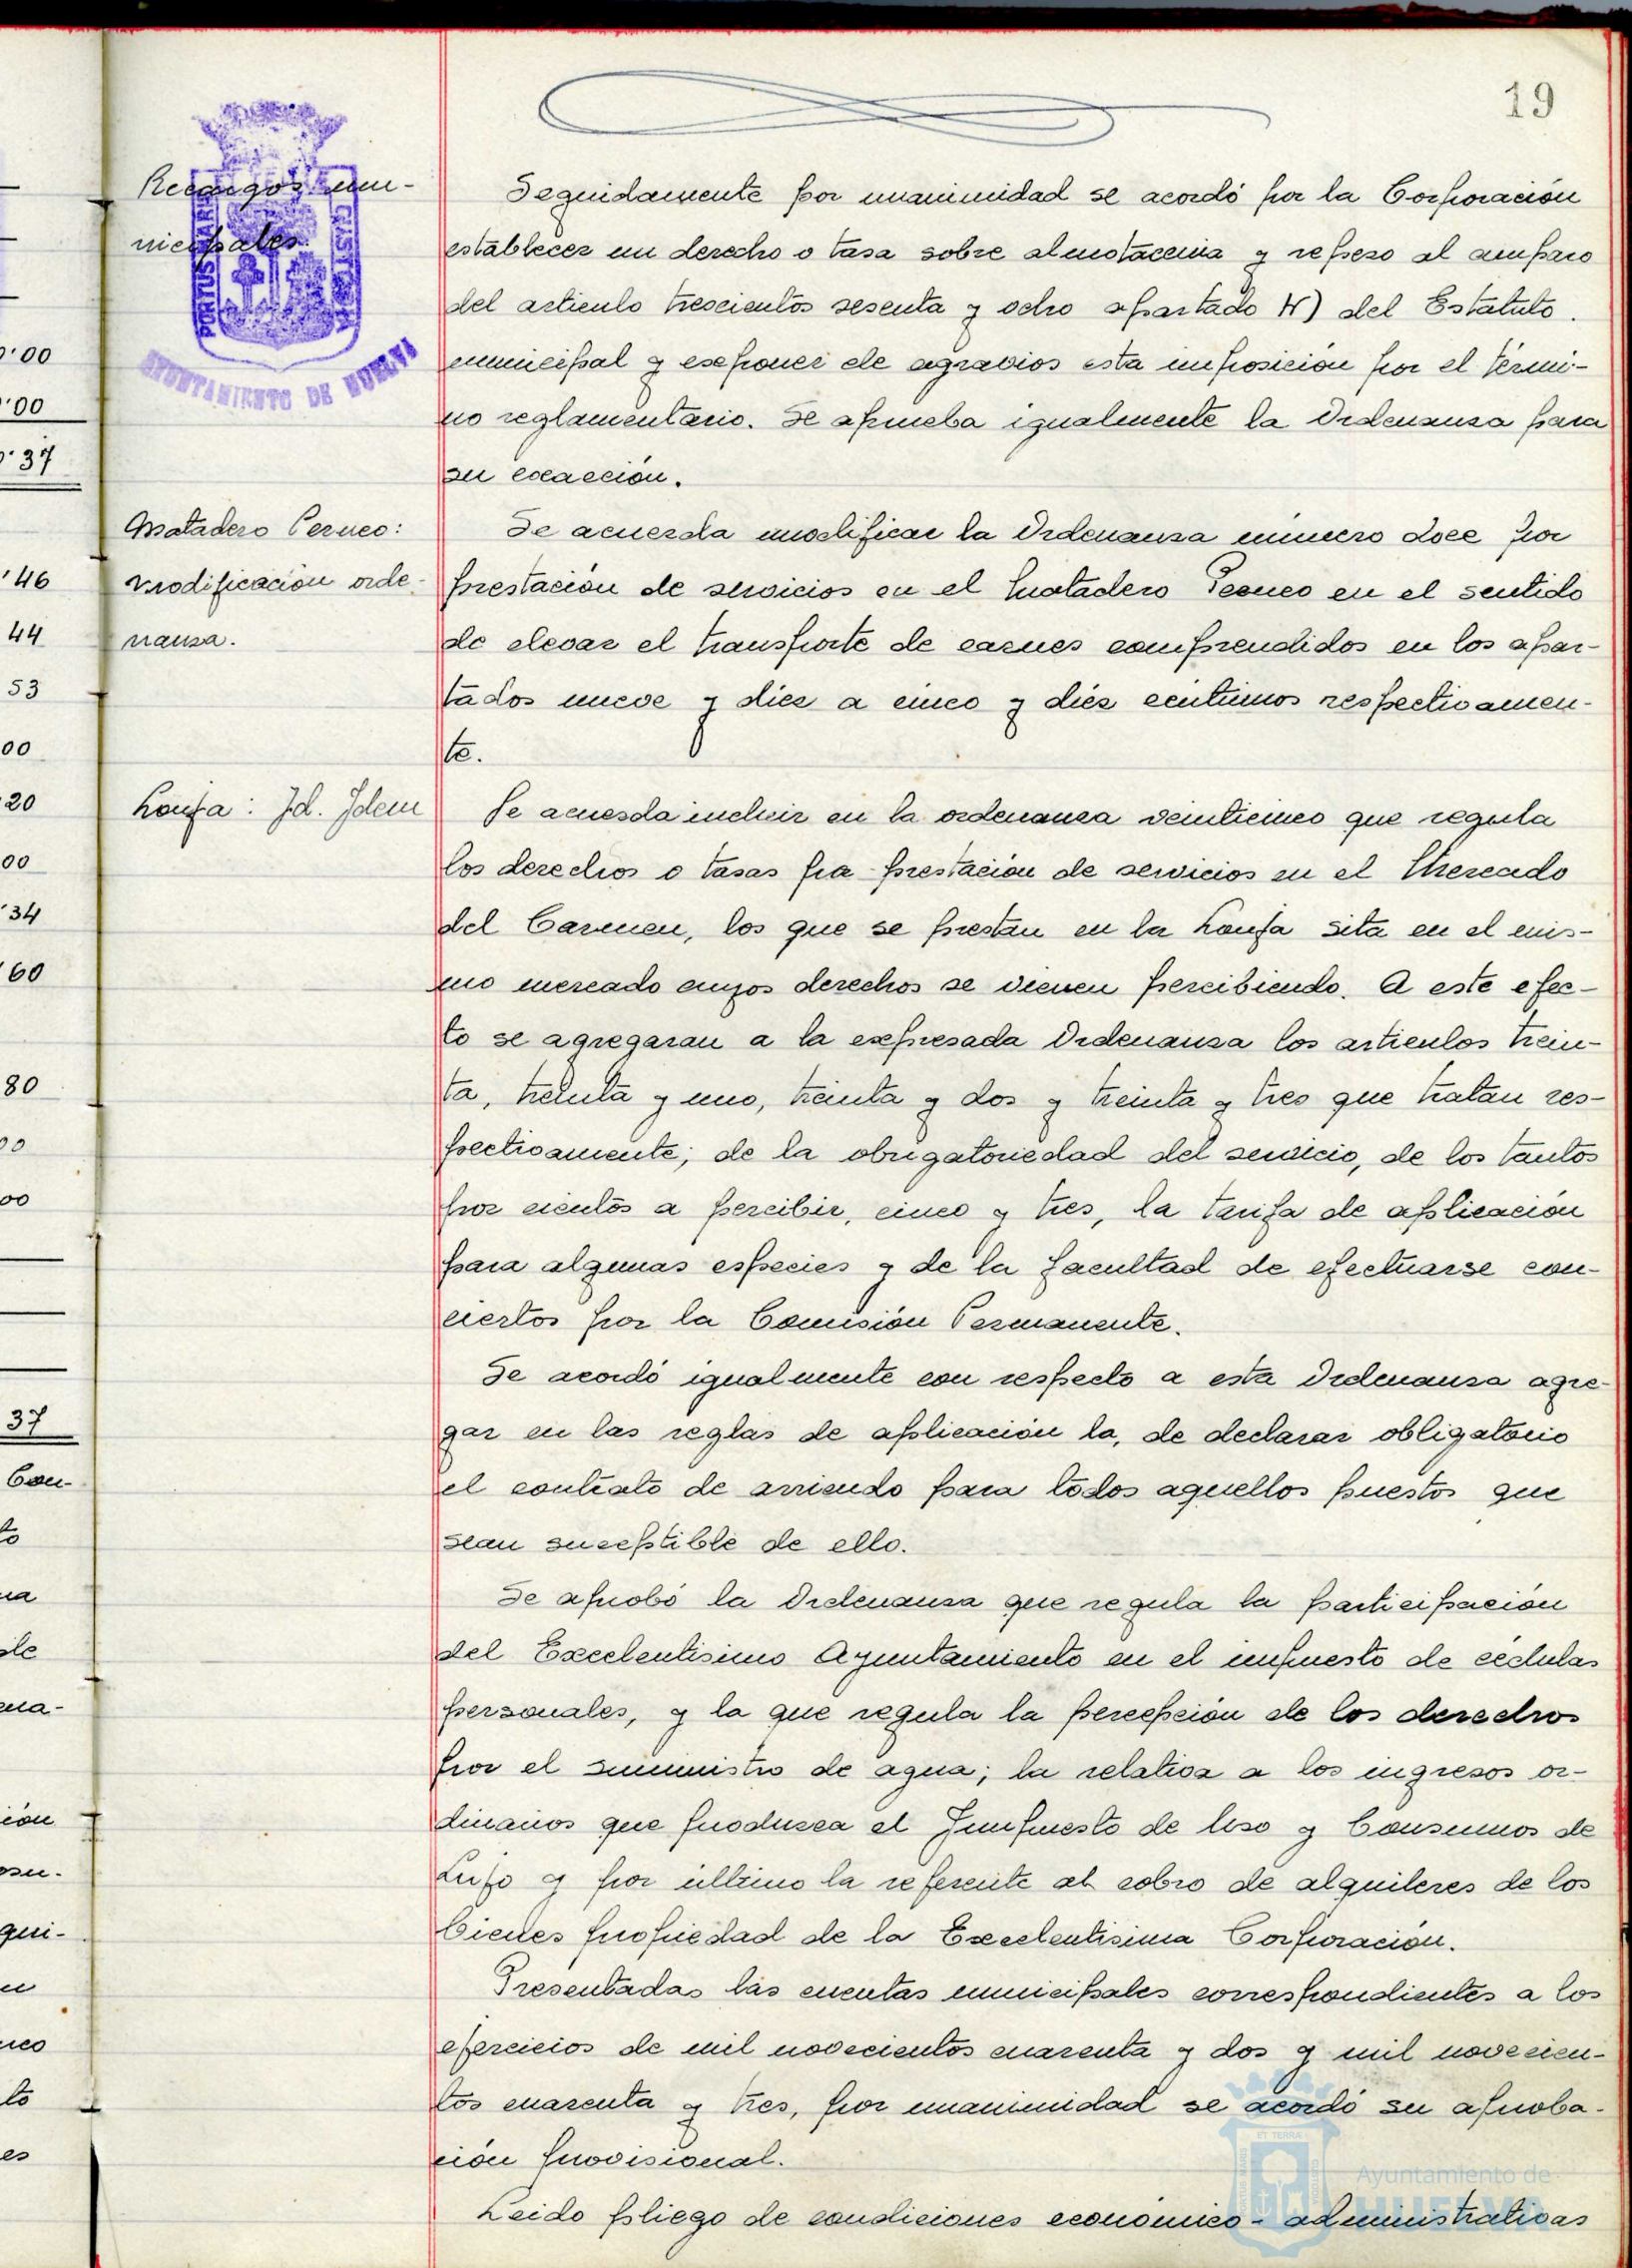 19
Recargos mu-
nicipales.
PORTUS MARIS
CUSTODIA
AYUNTAMIENTO DE HUELVA
Seguidamente por unanimidad se acordó por la Corporación
establecer un derecho o tasa sobre almotacenia y repeso al amparo
del articulo trescientos sesenta y ocho apartado H) del Estatuto.
municipal y exponer de agravios esta imposición por el térmi-
no reglamentario. Se aprueba igualmente la Ordenanza para
su exacción.
Matadero Perneo:
modificación orde-
nanza.
Se acuerda modificar la Ordenanza número doce por
prestación de servicios en el Matadero Perneo en el sentido
de elevar el transporte de carnes comprendidos en los apar-
tados nueve y diez a cinco y diéz centimos respectivamen-
te.
Lonja: Id. Idem
Se acuerda incluir en la ordenanza veinticinco que regula
los derechos o tasas pra prestación de servicios en el Mercado
del Carmen, los que se prestan en la Lonja sita en el mis-
mo mercado cuyos derechos se vienen percibiendo. A este efec-
to se agregaran a la expresada Ordenanza los articulos trein-
ta, treinta y uno, treinta y dos y treinta y tres que tratan res-
pectivamente; de la obrigatoriedad del servicio, de los tantos
por cientos a percibir, cinco y tres, la tarifa de aplicación
para algunas especies y de la facultad de efectuarse con-
ciertos por la Comisión Permanente.
Se acordó igualmente con respecto a esta Ordenanza agre-
gar en las reglas de aplicación la, de declarar obligatorio
el contrato de arriendo para todos aquellos puestos que
sean suceptible de ello.
Se aprobó la Ordenanza que regula la participación
del Excelentisimo Ayuntamiento en el impuesto de cédulas
personales, y la que regula la percepción de los derechos
por el suministro de agua; la relativa a los ingresos or-
dinarios que produzca el Impuesto de Uso y Consumos de
Lujo y por último la referente al cobro de alquileres de los
bienes propiedad de la Excelentisima Corporación.
Presentadas las cuentas municipales correspondientes a los
ejercicios de mil novecientos cuarenta y dos y mil novecien-
tos cuarenta y tres, por unanimidad se acordó su aproba-
ción provisional.
Leido pliego de condiciones económico-administrativas
Ayuntamiento de
HUELVA